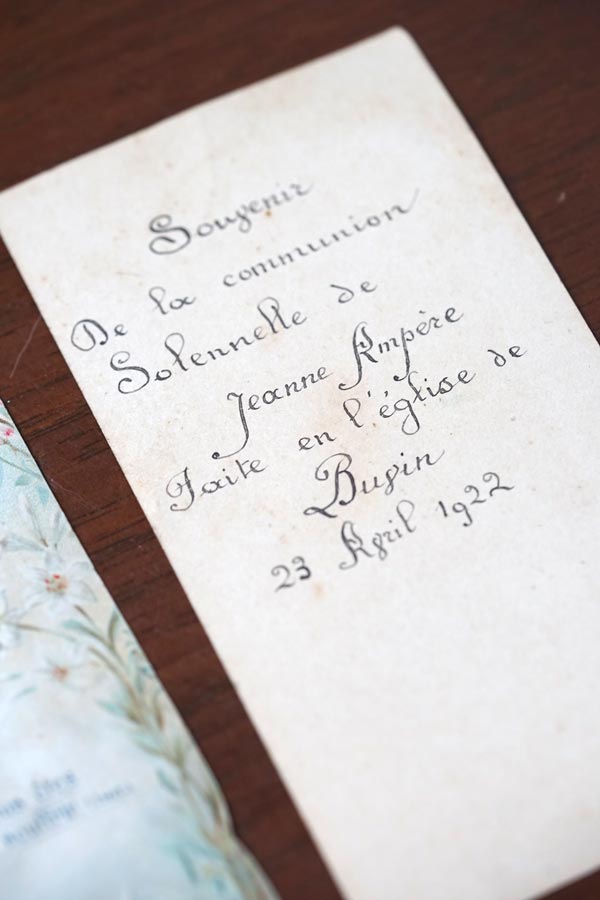 Souvenir
De la communion
Solennelle de
Jeanne Ampère
Faite en l'église de
23 Avril 1922